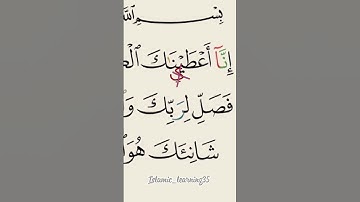 بِسْمِ ٱللَّه
إِنَّآ أَعْطَيْنَٰكَ ٱلْ
فَصَلِّ لِرَبِّكَ وَ
شَانِئَكَ هُوَ ٱ
Islamic_learning35